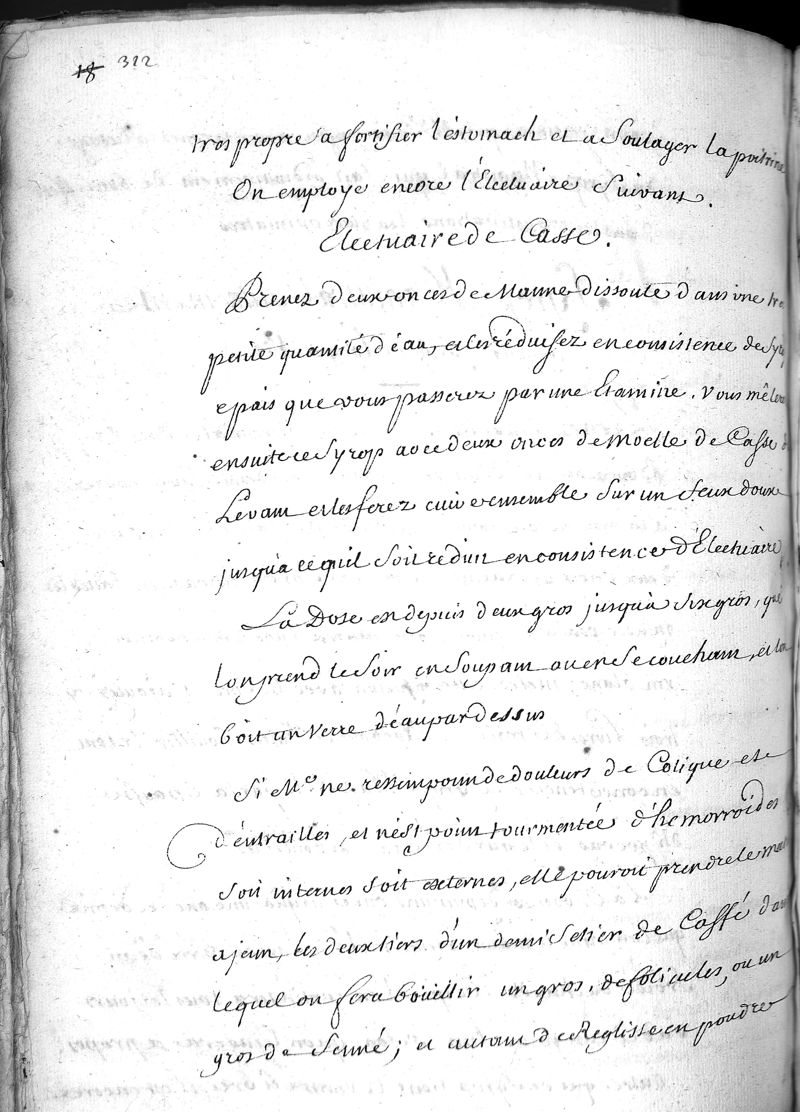 18 312
tres propre a fortifier l'éstomach et a Soulager la poitrine
On employe encore l'Électuaire Suivant.
Electuaire de Casse.
Prenez deux onces de Manne dissoute dans une tres
petite quantité d'éau, et les réduisez en consistence de Syrop
epais que vous passerez par une Etamine. Vous mêlerez
ensuite ce Syrop avec deux onces de Moelle de Casse du
Levant et les ferez cuire ensemble Sur un feux doux
jusqu'à ce quil Soit réduit en consistence d'Electuaire,
La Dose est depuis deux gros jusqu'à Six gros, que
lon prend le Soir en Soupant ou en Se couchant, et lon
boit un Verre d'éau par dessus
Si Me. ne ressent point de douleurs de Colique et
d'éntrailles, et n'est point tourmentée d'hemorroides
Soit internes Soit externes, elle pouroit prendre le matin
a jeun, les deux tiers d'un demi Setier de Caffé dans
lequel on fera boüillir un gros, de folicules, ou un
gros de Senné; et autant de Reglisse en poudre